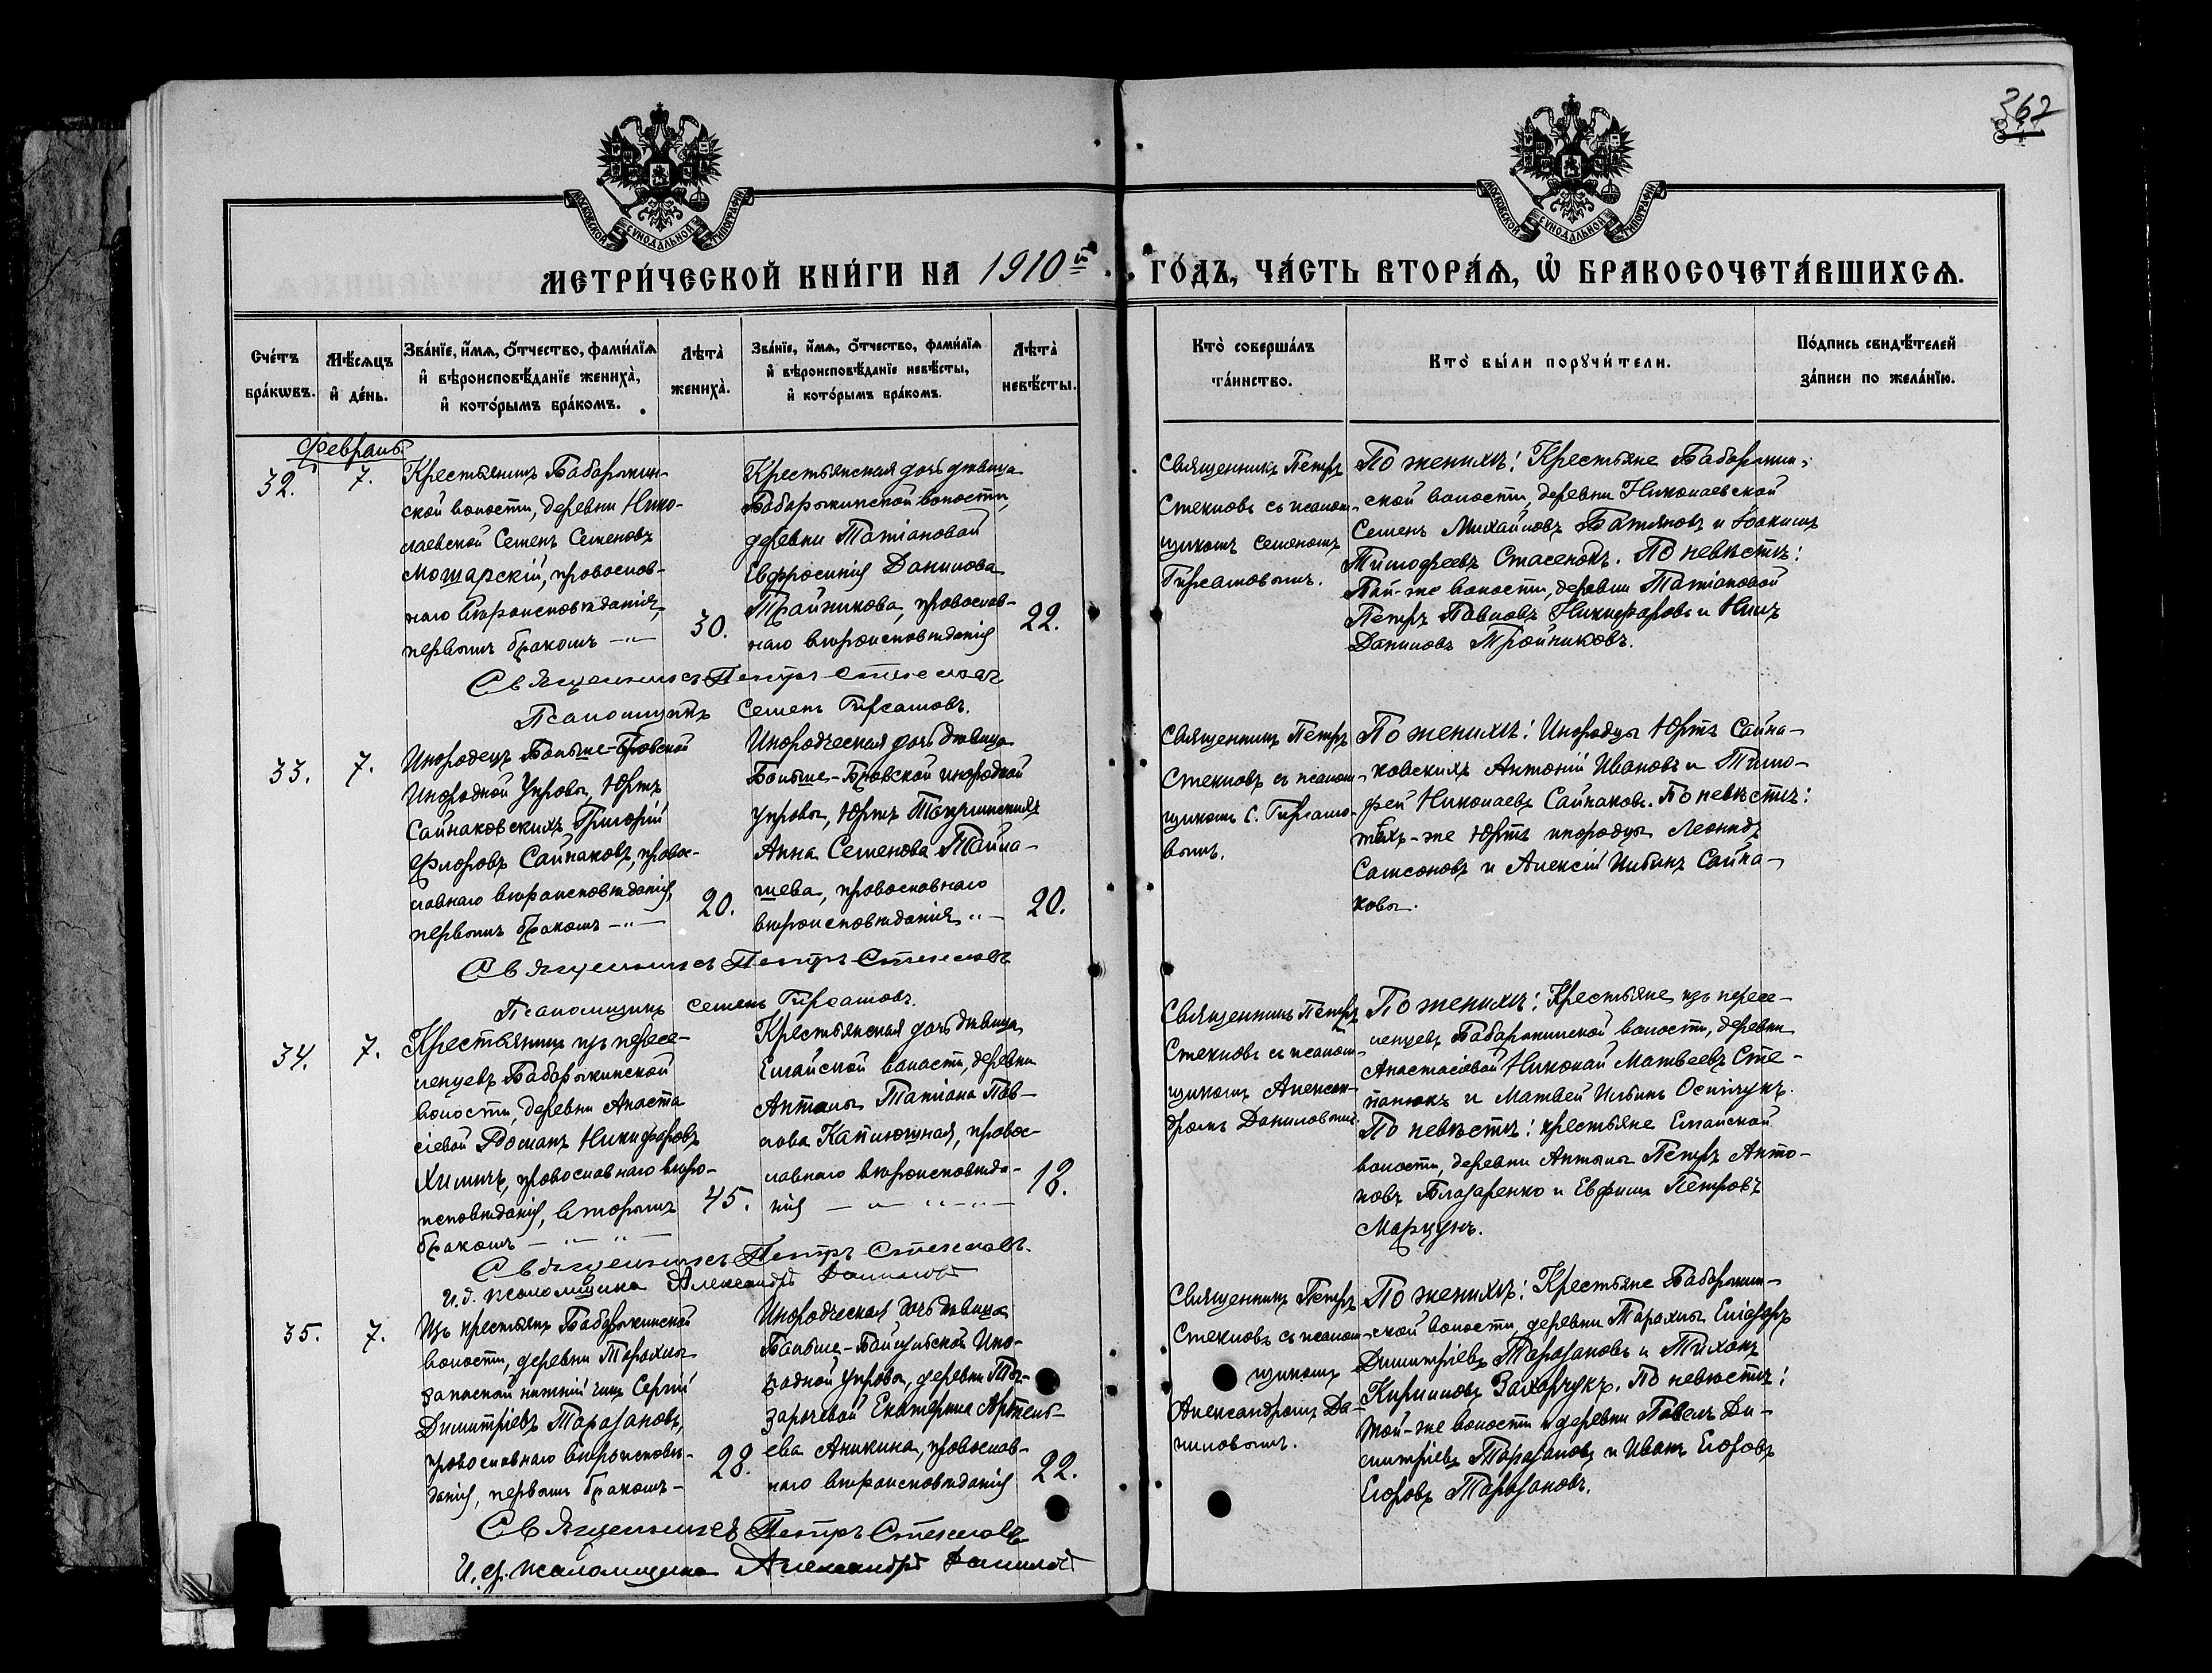 362
МОСКОВСКОЙ СУНОДАЛЬНОЙ ТИПОГРАФІИ
МОСКОВСКОЙ СУНОДАЛЬНОЙ ТИПОГРАФІИ
МЕТРИ́ЧЕСКОЙ КНИ́ГИ НА 1910й ГО́ДЪ, ЧА́СТЬ ВТОРА́Ѧ, Ѡ҆ БРАКОСОЧЕТА́ВШИХСѦ.
Сче́тъ
бра́кѡвъ.
Мѣ́сѧцъ
и҆ де́нь.
Зва́нїе, и҆́мѧ, ѻ҆́тчество, фами́лїѧ
и҆ вѣроисповѣ́данїе жениха̀,
и҆ кото́рымъ бра́комъ.
Лѣ́та
жениха̀.
Зва́нїе, и҆́мѧ, ѻ҆́тчество, фами́лїѧ
и҆ вѣроисповѣ́данїе невѣ́сты,
и҆ кото́рымъ бра́комъ.
Лѣ́та
невѣ́сты.
Кто̀ соверша́лъ
та́инство.
Кто̀ бы́ли порꙋчи́тели.
По́дпись свидѣ́телей
за́писи по жела́нїю.
Февраль
32.
7.
Крестьянинъ Бабарыкин-
ской волости, деревни Нико-
лаевской Семенъ Семеновъ
Мошарскій, православ-
наго вѣроисповѣданія,
первымъ бракомъ
30.
Крестьянская дочь дѣвица
Бабарыкинской волости,
деревни Татіановой
Евфросинія Данилова
Тройникова, православ-
наго вѣроисповѣданія
22.
Священникъ Петръ
Стекловъ съ псалом-
щикомъ Семеномъ
Гирсамовымъ.
По женихѣ: Крестьяне Бабарыкин-
ской волости, деревни Николаевской
Семенъ Михайловъ Батяновъ и Іоакимъ
Тимофеевъ Стасенокъ. По невѣстѣ:
той-же волости, деревни Татіановой
Петръ Павловъ Никифоровъ и Нилъ
Даниловъ Тройниковъ.
Священникъ Петръ Стекловъ
Псаломщикъ Семенъ Гирсамовъ.
33.
7.
Инородецъ
Инородной Управы, Юртъ
Сайнаковскихъ Григорій
Флоровъ Сайнаковъ, право-
славнаго вѣроисповѣданія,
первымъ бракомъ
20.
Инородческая дочь дѣвица
инородной
управы, Юртъ
Анна Семенова
православнаго
вѣроисповѣданія
20.
Священникъ Петръ
Стекловъ съ псалом-
щикомъ С. Гирсамо-
вымъ.
По женихѣ: Инородцы Юртъ Сайна-
ковскихъ Антоній Ивановъ и Тимо-
фей Николаевъ Сайнаковъ. По невѣстѣ:
тѣхъ-же Юртъ инородцы Леонидъ
Самсоновъ и Алексій Ильинъ Сайна-
ковы.
Священникъ Петръ Стекловъ
Псаломщикъ Семенъ Гирсамовъ.
34.
7.
Крестьянинъ изъ пересе-
ленцевъ Бабарыкинской
волости, деревни Анаста
сіевой Романъ Никифоровъ
Химичъ, православнаго вѣро-
исповѣданія, вторымъ
бракомъ
45.
Крестьянская дочь дѣвица
Елгайской волости, деревни
Татіана Пав-
лова православ-
славнаго вѣроисповѣда-
нія
18.
Священникъ Петръ
Стекловъ съ псалом-
щикомъ Алексан-
дромъ Даниловымъ
По женихѣ: Крестьяне изъ пересе-
ленцевъ Бабарыкинской волости, деревни
Анастасіевой Николай Матвеевъ Сте-
панюкъ и Матвей Ильинъ Осипчукъ.
По невѣстѣ: крестьяне Елгайской
волости, деревни Петръ Анто-
новъ и Евфимъ Петровъ
Марцунъ.
Священникъ Петръ Стекловъ.
И.д. псаломщика Александръ Даниловъ
35.
7.
Изъ крестьянъ Бабарыкинской
волости, деревни
запасной нижній чинъ Сергій
Димитріевъ Таразановъ,
православнаго вѣроисповѣ-
данія, первымъ бракомъ
28.
Инородческая дочь дѣвица
Ино-
родной управы, деревни
Екатерина
Аникина, православ-
наго вѣроисповѣданія
22.
Священникъ Петръ
Стекловъ съ псалом-
щикомъ
Александромъ Да-
ниловымъ.
По женихѣ: Крестьяне Бабарыкин-
ской волости деревни
Димитріевъ Таразановъ и Тихонъ
Кирилловъ Захарчукъ. По невѣстѣ:
той-же волости и деревни Павелъ Ди-
митріевъ Таразановъ и Иванъ Егоровъ
Егоровъ Таразановъ.
Священникъ Петръ Стекловъ
И.д. псаломщика Александръ Даниловъ